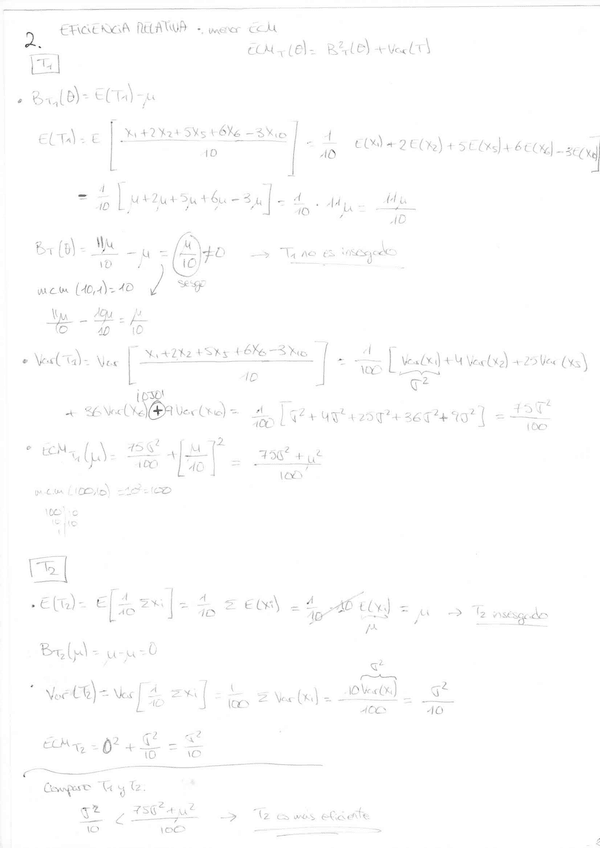 2. EFICIENCIA RELATIVA : menor ECM
ECM_T(θ) = B²_T(θ) + Var(T)
T₁
• B_T₁(θ) = E(T₁) - μ
E(T₁) = E [ (x₁ + 2x₂ + 5x₅ + 6x₆ - 3x₁₀) / 10 ] = 1/10 E(x₁) + 2E(x₂) + 5E(x₅) + 6E(x₆) - 3E(x₁₀)
= 1/10 [μ + 2μ + 5μ + 6μ - 3μ] = 1/10 · 11μ = 11μ/10
B_T(θ) = 11μ/10 - μ = μ/10 ≠ 0 → T₁ no es insesgado
sesgo
mcm (10,1) = 10
11μ/10 - 10μ/10 = μ/10
• Var(T₂) = Var [ (x₁ + 2x₂ + 5x₅ + 6x₆ - 3x₁₀) / 10 ] = 1/100 [Var(x₁) + 4Var(x₂) + 25Var(x₅)
σ²
¡ojo!
+ 36Var(x₆) + 9Var(x₁₀) = 1/100 [σ² + 4σ² + 25σ² + 36σ² + 9σ²] = 75σ²/100
• ECM_T₁(μ) = 75σ²/100 + [μ/10]² = (75σ² + μ²)/100
mcm (100,10) = 10² = 100
100 | 10
10 | 10
1
T₂
• E(T₂) = E[1/10 Σxi] = 1/10 Σ E(xi) = 1/10 · 10 E(xi) = μ → T₂ insesgado
μ
B_T₂(μ) = μ - μ = 0
σ²
• Var(T₂) = Var [1/10 Σxi] = 1/100 Σ Var(xi) = 10Var(xi)/100 = σ²/10
ECM_T₂ = 0² + σ²/10 = σ²/10
Comparo T₁ y T₂.
σ²/10 < (75σ² + μ²)/100 → T₂ es mas eficiente